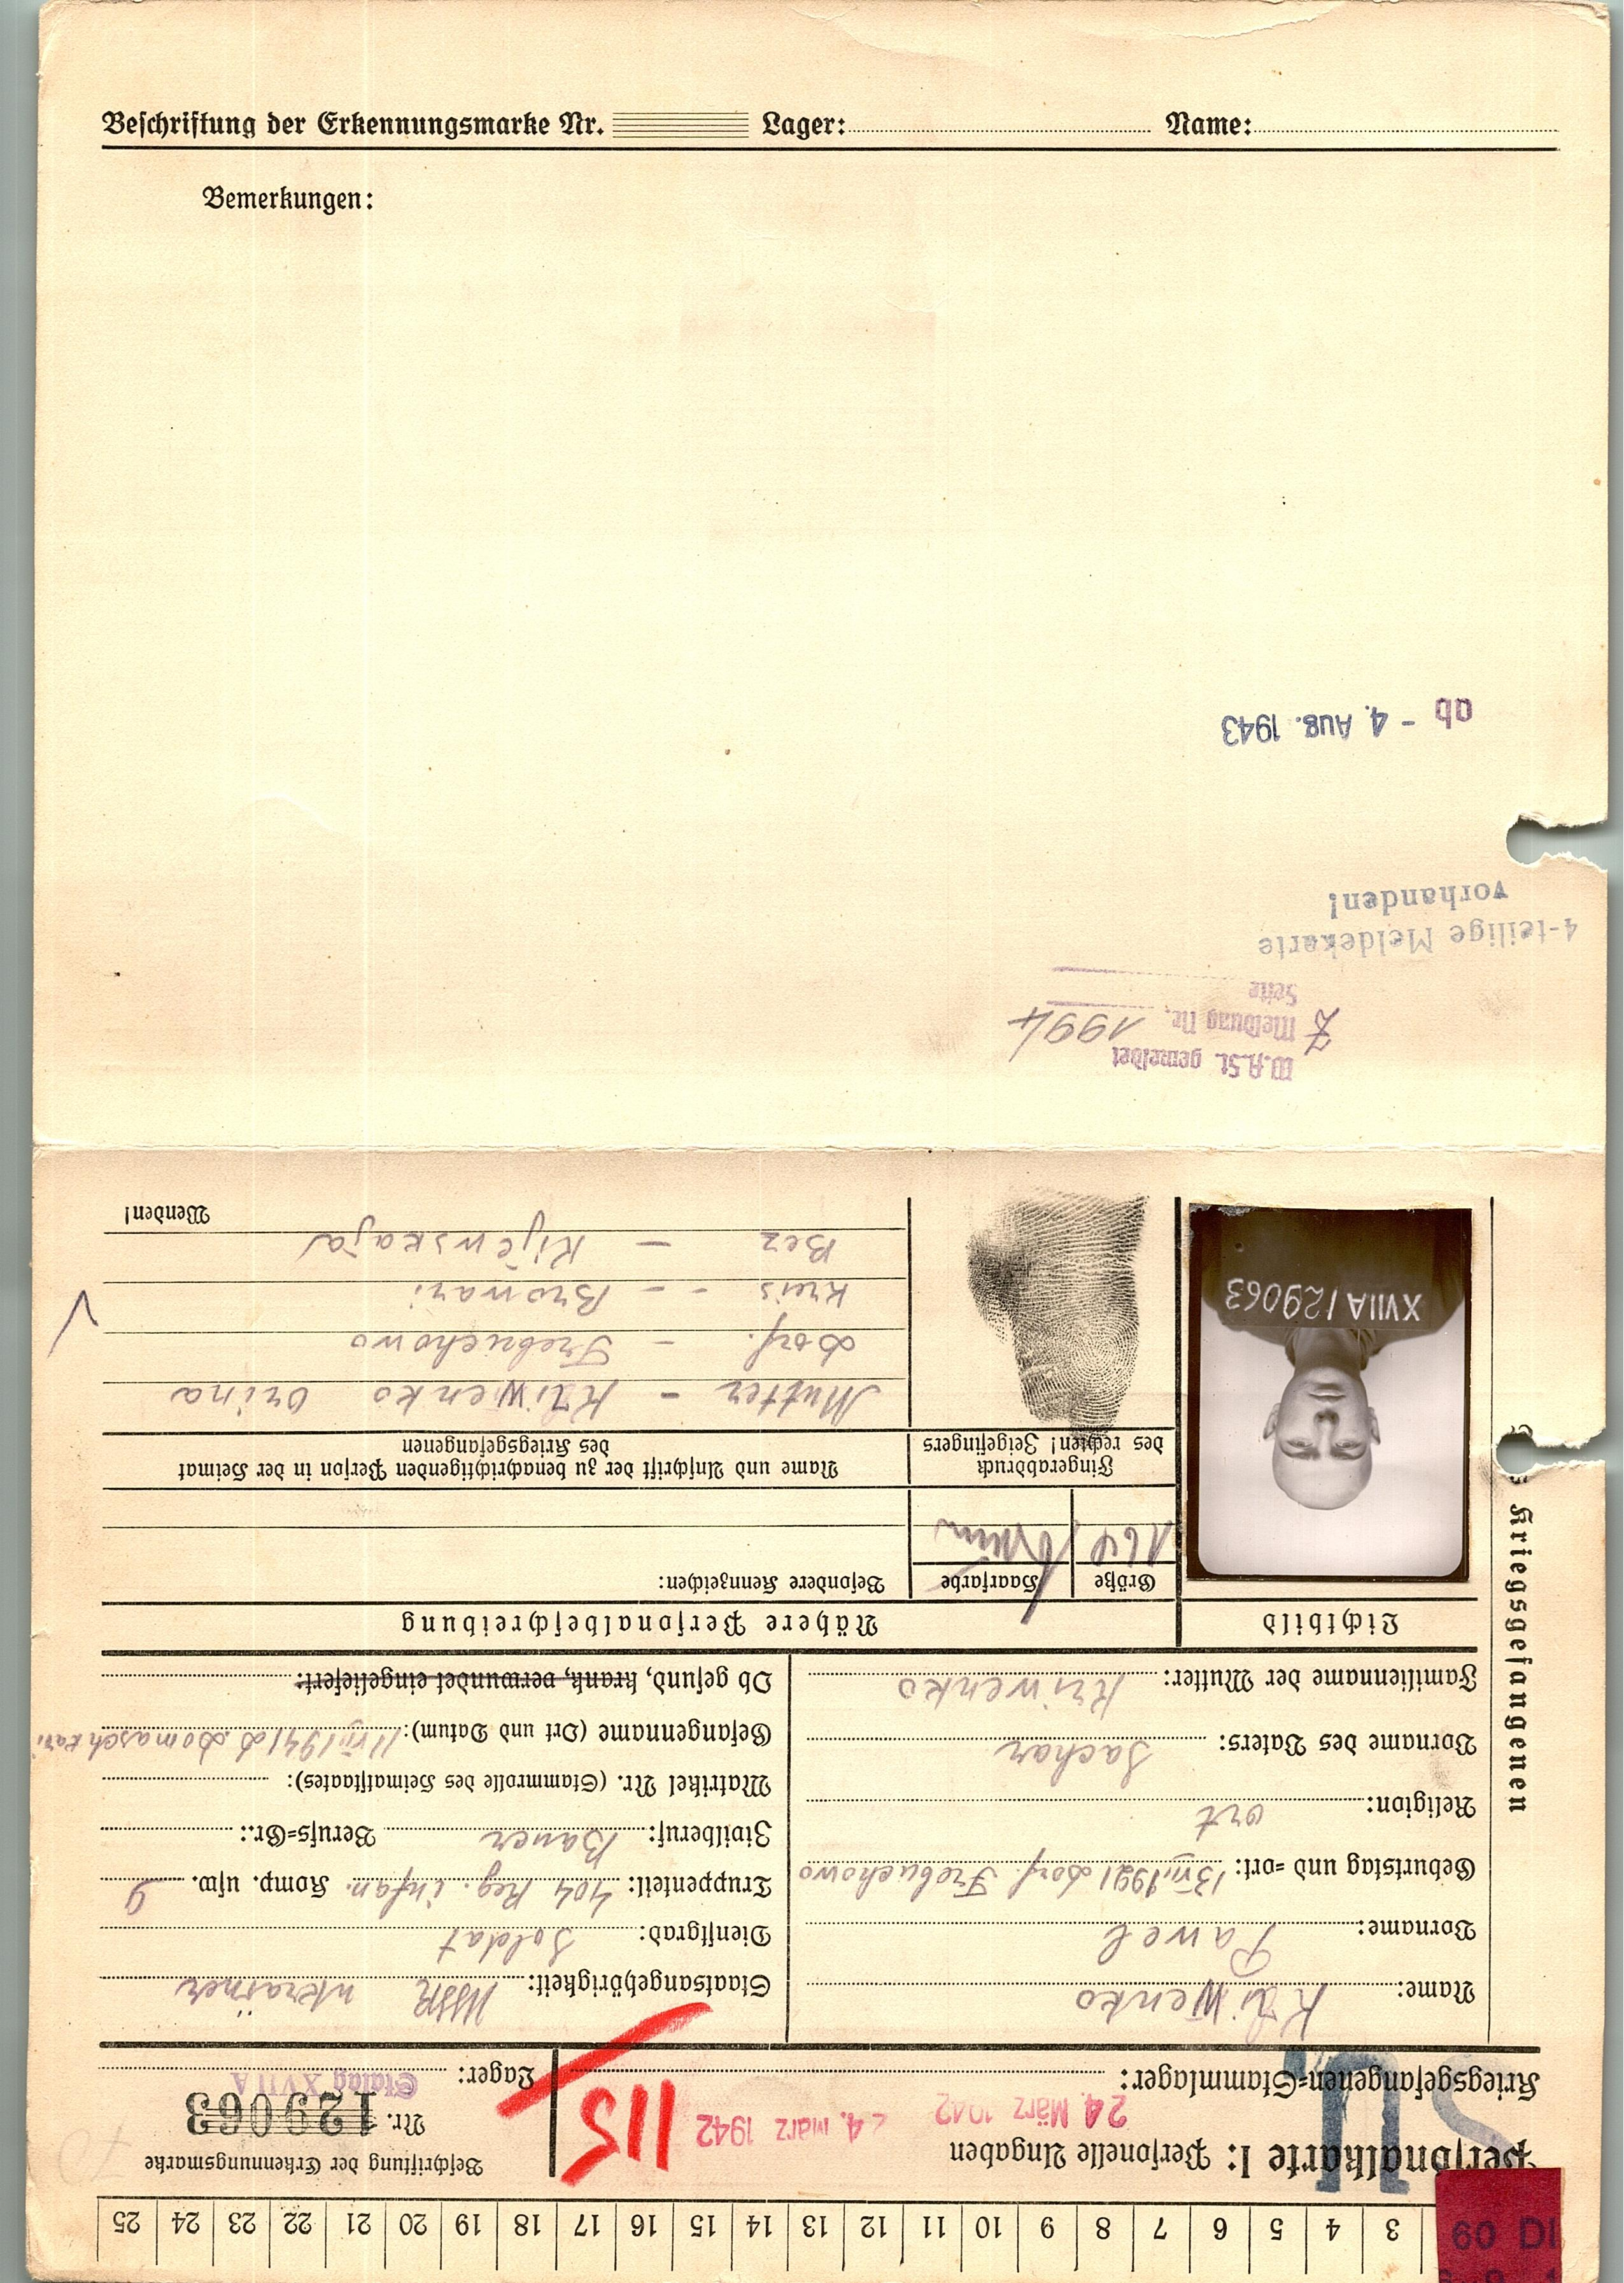 Beschriftung der Erkennungsmarke Nr. Lager: Name:
Bemerkungen:
25 24 23 22 21 20 19 18 17 16 15 14 13 12 11 10 9 8 7 6 5 4 3
60 DI
Personalkarte I: Personelle Angaben
Beschriftung der Erkennungsmarke
24. März 1942 24. März 1942
115
Nr. 129063
Kriegsgefangenen-Stammlager:
Lager: Stalag XVII A
Name: Kriwenko
Vorname: Pawel
Geburtstag und -ort: 13.VII.1921 Dorf. Trebuchowo
Religion: ort
Vorname des Vaters: Sachar
Familienname der Mutter: Kriwenko
Staatsangehörigkeit: USSR ukrainer
Dienstgrad: Soldat
Truppenteil: 404 Reg. infan. Komp. usw. 9
Zivilberuf: Bauer Berufs-Gr.:
Matrikel Nr. (Stammrolle des Heimatstaates):
Gefangenname (Ort und Datum): 1941 D Domaschkari
Ob gesund, krank, verwundet eingeliefert:
des Kriegsgefangenen
Lichtbild
Nähere Personalbeschreibung
Größe Haarfarbe Besondere Kennzeichen:
164 braun
Fingerabdruck
des rechten! Zeigefingers
Name und Anschrift der zu benachrichtigenden Person in der Heimat
des Kriegsgefangenen
XVIIA/29063
Mutter - Kriwenko Orina
Dorf. - Trebuchowo
Kreis - - Browari
Bez - Kijewskaja
Wenden!
W.A.St. gemeldet
Z Meldung Nr. 1994
Seite
4-teilige Meldekarte
vorhanden!
ab - 4. Aug. 1943